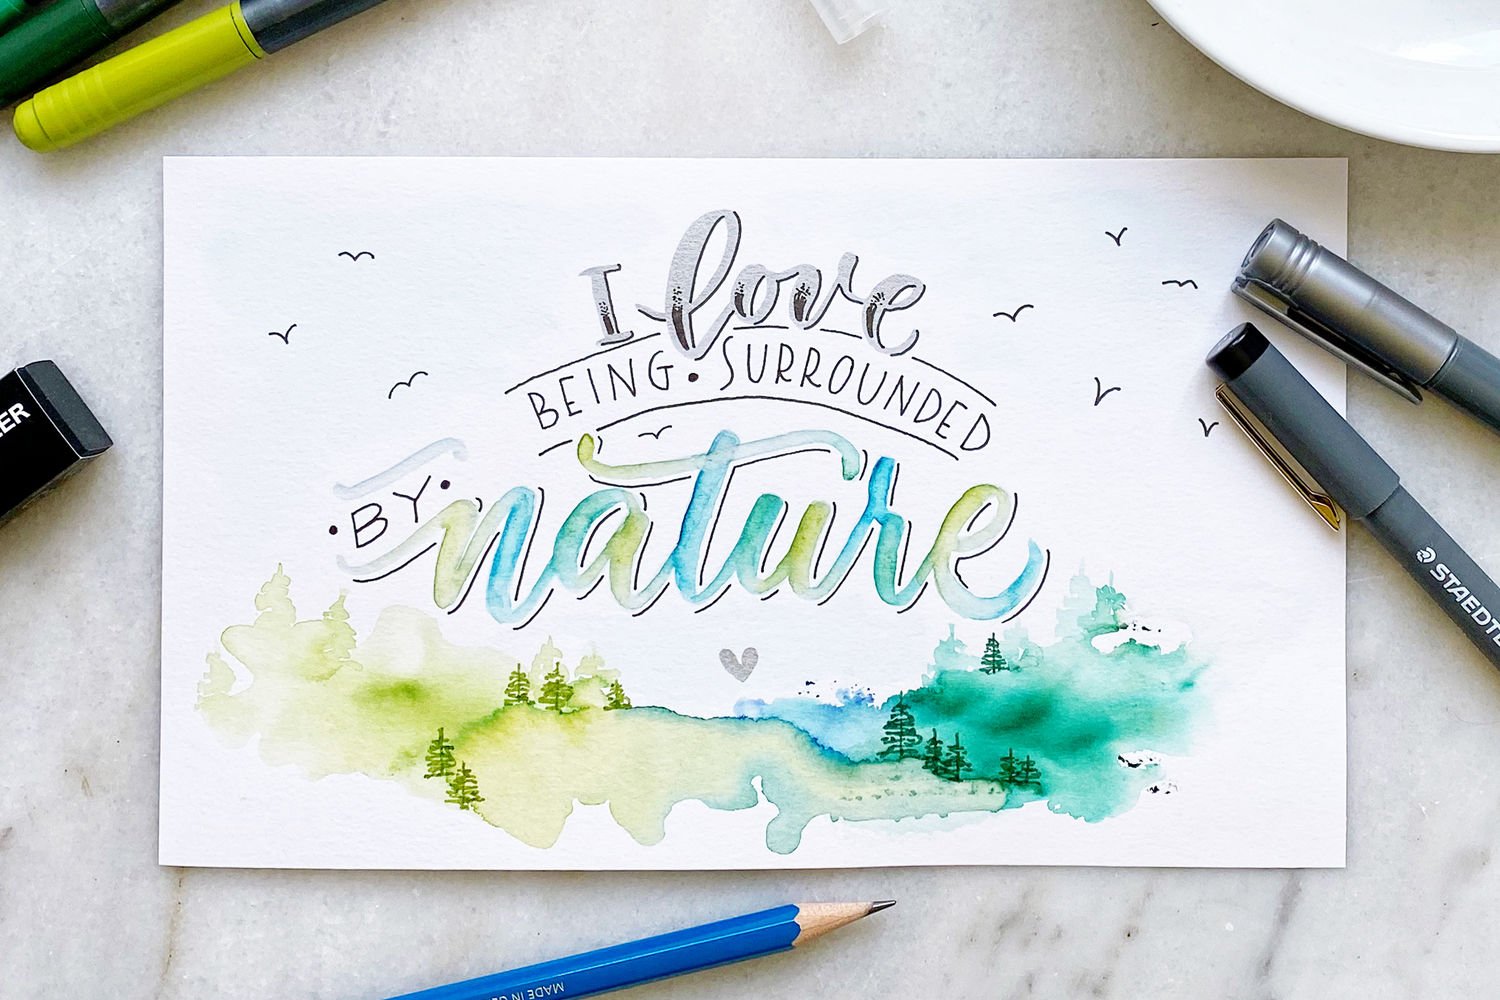 I love
BEING • SURROUNDED
• BY •
nature
STAEDTL
MADE IN G
ER